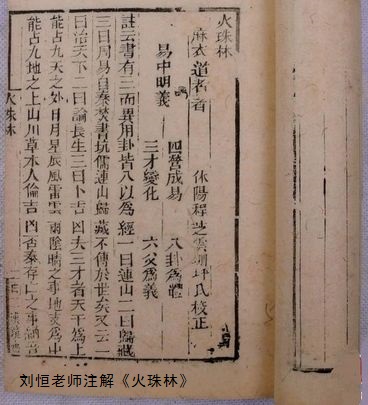 火珠林
麻衣道者著 休陽程芝雲潤坪氏校正
四營成易 八卦為體
易中明義
三才變化 六爻為義
註云書有三而異用卦皆八以為經一曰連山二曰歸藏
三曰周易自秦焚書坑儒連山歸藏不傳於世矣又云一
曰治天下二曰論長生三曰卜吉凶夫三才者天干為上
能占九天之外日月星辰風雷雲雨陰晴之事地支為中
能占九地之上山川草木人倫吉凶否泰存亡之事納音
火珠林
刘恒老师注解《火珠林》